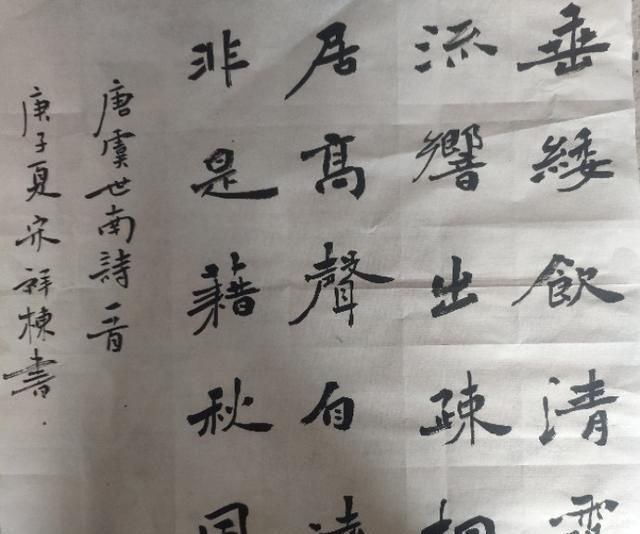 垂緌飲清
流響出疎
居高聲自
非是藉秋
唐虞世南詩一首
庚子夏宋祥棟書